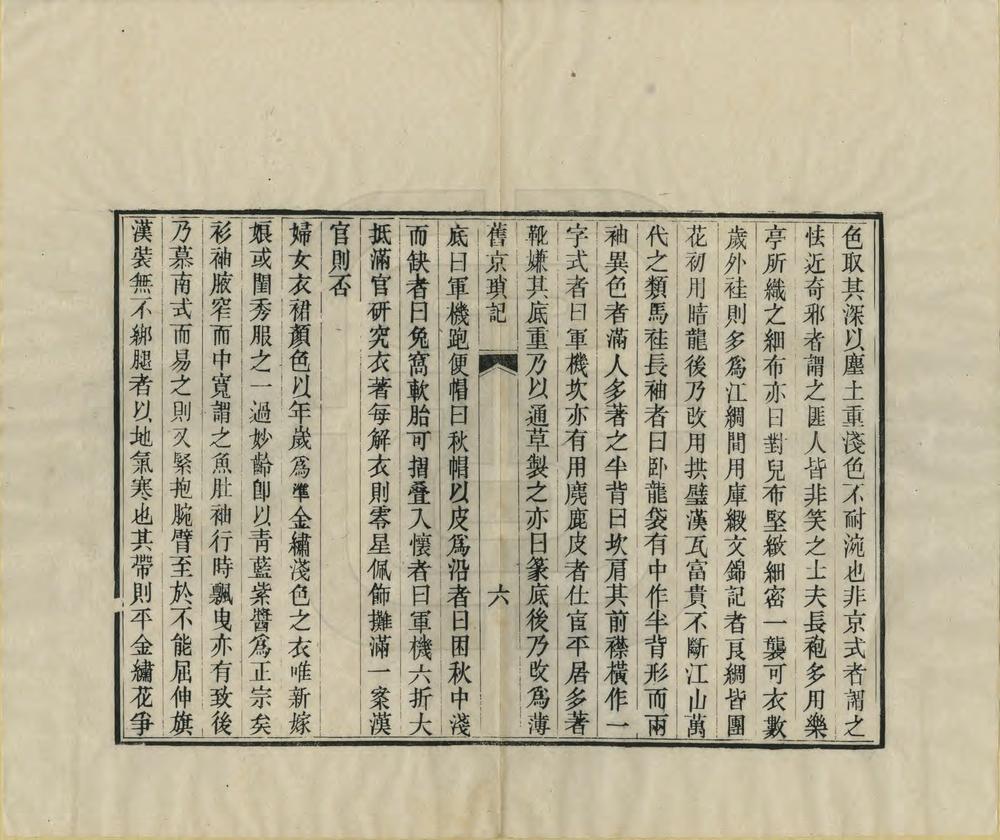 色取其深以塵土重淺色不耐涴也非京式者謂之
怯近奇邪者謂之匪人皆非笑之士夫長袍多用樂
亭所織之細布亦曰對兒布堅緻細密一襲可衣數
歲外袿則多爲江綢間用庫緞文錦記者良綢皆團
花初用暗龍後乃改用拱璧漢瓦富貴不斷江山萬
代之類馬袿長袖者曰卧龍袋有中作半背形而兩
袖異色者滿人多著之半背曰坎肩其前襟橫作一
字式者曰軍機坎亦有用麂鹿皮者仕宦平居多著
靴嫌其底重乃以通草製之亦曰篆底後乃改爲薄
舊京瑣記 六
底曰軍機跑便帽曰秋帽以皮爲沿者曰困秋中淺
而缺者曰兔窩軟胎可摺疊入懷者曰軍機六折大
抵滿官研究衣著每解衣則零星佩飾攤滿一案漢
官則否
婦女衣裙顏色以年歲爲準金繡淺色之衣唯新嫁
娘或閨秀服之一過妙齡卽以靑藍紫醬爲正宗矣
衫袖腋窄而中寬謂之魚肚袖行時飄曳亦有致後
乃慕南式而易之則又緊抱腕臂至於不能屈伸旗
漢裝無不綁腿者以地氣寒也其帶則平金繡花爭